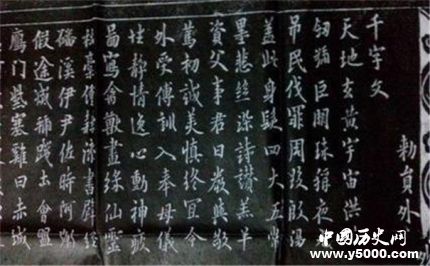 勅員外
千字文
天地玄黃宇宙洪
劒號巨闕珠稱夜
吊民伐罪周發殷湯
蓋此身髮四大五常
墨悲絲染詩讃羔羊
資父事君曰嚴與敬
篤初誠美慎終宜令
外受傅訓入奉母儀
性靜情逸心動神疲
圖寫禽獸畫綵仙靈
杜稾鍾隸漆書壁經
磻溪伊尹佐時阿衡
假途滅虢踐土會盟
鴈門紫塞雞田赤城
中國历史网
www.y5000.com